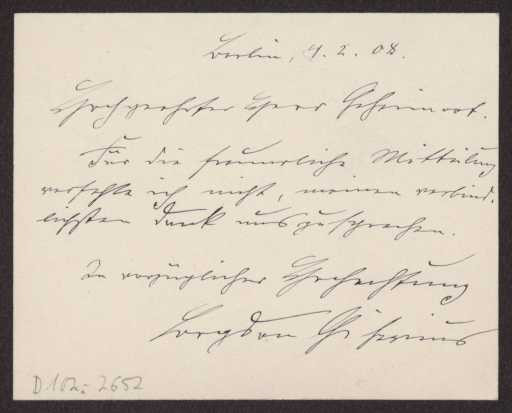 Berlin, 9.2.08.
Hochgeehrter Herr Geheimrat.
Für die freundliche Mitteilung
verfehle ich nicht, meinen verbind-
lichsten Dank auszusprechen.
In vorzüglicher Hochachtung
D 102: 2652